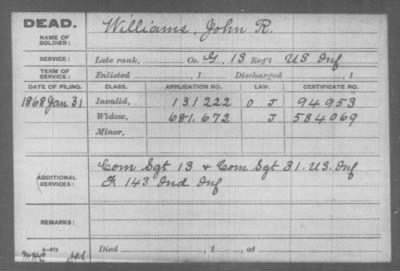 DEAD.
NAME OF SOLDIER: Williams, John R.
SERVICE: Late rank, Co. G, 13 Reg't US Inf
TERM OF SERVICE: Enlisted , 1 Discharged , 1
DATE OF FILING. CLASS. APPLICATION NO. LAW. CERTIFICATE NO.
1868 Jan 31 Invalid, 131222 O J 94953
Widow, 681.672 J 534069
Minor,
ADDITIONAL SERVICES: Com Sgt 13 & Com Sgt 31. US. Inf
K 143 Ind Inf
REMARKS:
Died , 1 , at